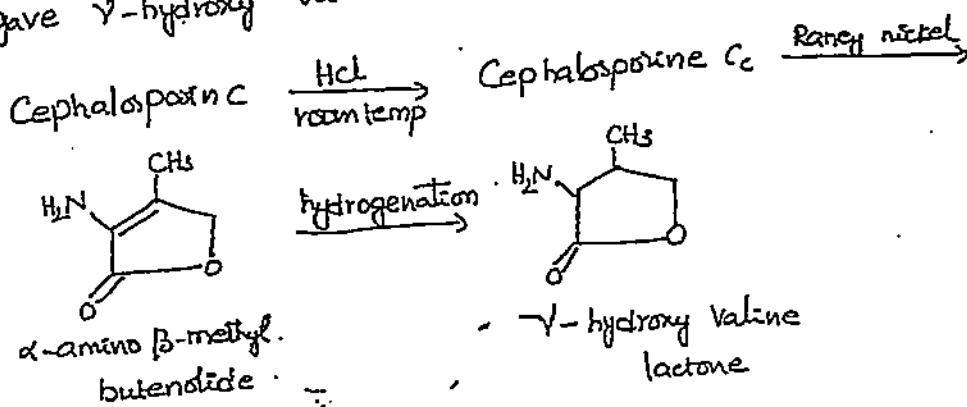 gave γ-hydroxy
Cephalosporin C HCl room temp Cephalosporine Cc Raney nickel
CH3 H2N O O hydrogenation CH3 H2N O O
α-amino β-methyl. butenolide
γ-hydroxy Valine lactone